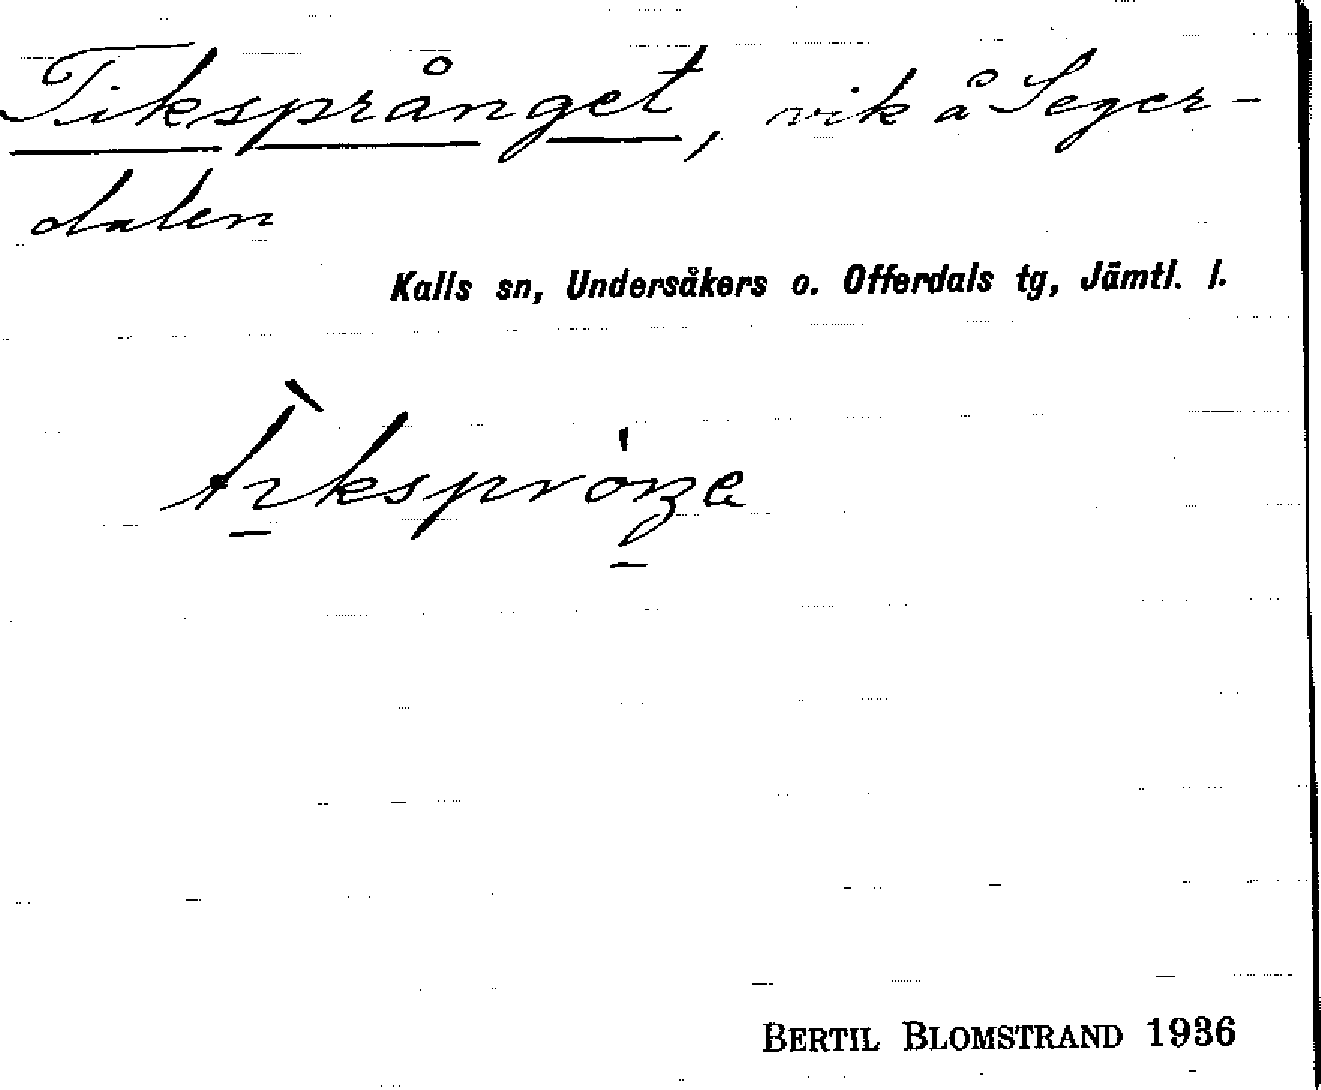 Tiksprånget, vik å Seger-
dalen
Kalls sn, Undersåkers o. Offerdals tg, Jämtl. l.
BERTIL BLOMSTRAND 1936